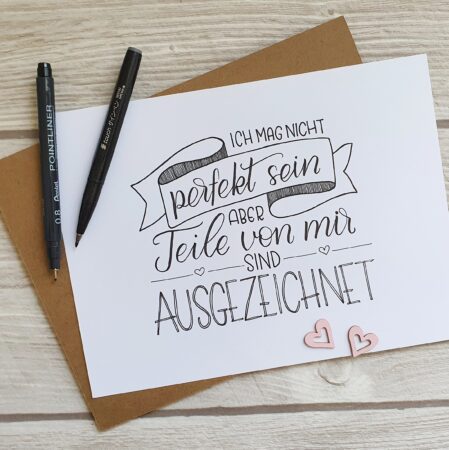 ICH MAG NICHT
perfekt sein
ABER
Teile von mir
SIND
AUSGEZEICHNET
POINTLINER
0.8
Pentel
touch